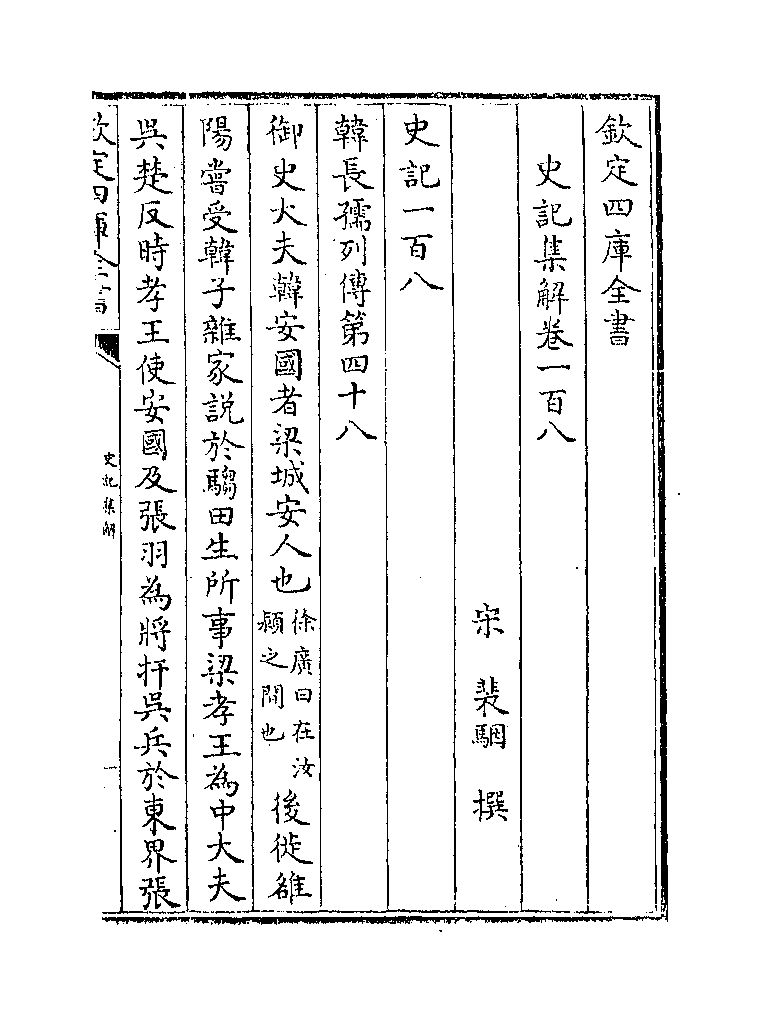 欽定四庫全書
史記集解卷一百八
宋 裴駰 撰
史記一百八
韓長孺列傳第四十八
御史大夫韓安國者梁城安人也徐廣曰在汝潁之間也後徙雒
陽嘗受韓子雜家説於騶田生所事梁孝王為中大夫
吳楚反時孝王使安國及張羽為將扞吳兵於東界張
欽定四庫全書
史記集解
一